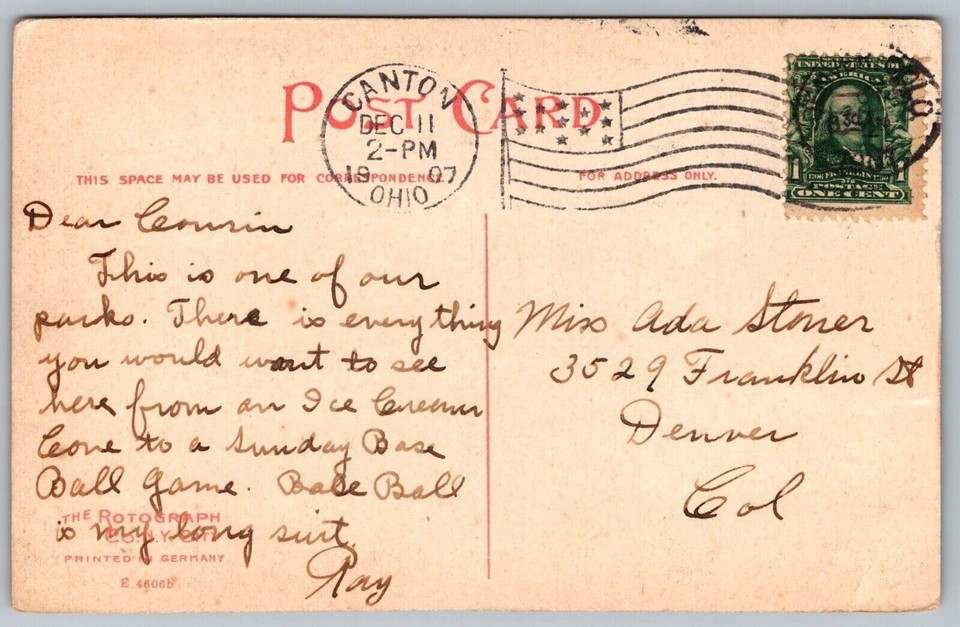 POST CARD
CANTON
DEC 11
2-PM
1907
OHIO
UNITED STATES OF
AMERICA
1 FRANKLIN 1
POSTAGE
ONE CENT
THIS SPACE MAY BE USED FOR CORRESPONDENCE.
FOR ADDRESS ONLY.
Dear Cousin
This is one of our
parks. There is everything
you would want to see
here from an Ice Cream
Cone to a Sunday Base
Ball Game. Base Ball
is my long suit.
Ray
Miss Ada Stoner
3529 Franklin St
Denver
Col
THE ROTOGRAPH
CO. N.Y. CITY
PRINTED IN GERMANY
E 4606b